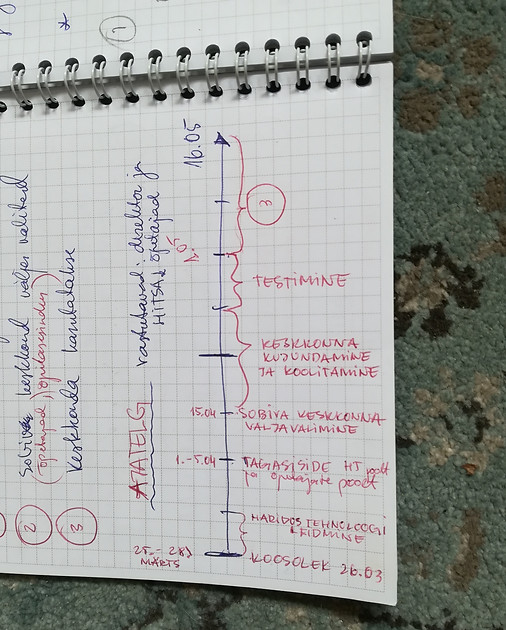 1
2 Sobiv keskkond väljas valitud
(õpetajad) (õpilasesindus)
3 Keskkonda kasutatakse
AJATELG vastutavad: direktor ja
HITSA & õpetajad
16.05
3
TESTIMINE
KESKKONNA
KUJUNDAMINE
JA KOOLITAMINE
15.04 SOBIVA KESKKONNA
VÄLJAVALIMINE
1.-5.04 TAGASISIDE HT poolt
ja õpetajate poolt
HARIDUSTEHNOLOOGI
LEIDMINE
25.-28.
MÄRTS
KOOSOLEK 26.03